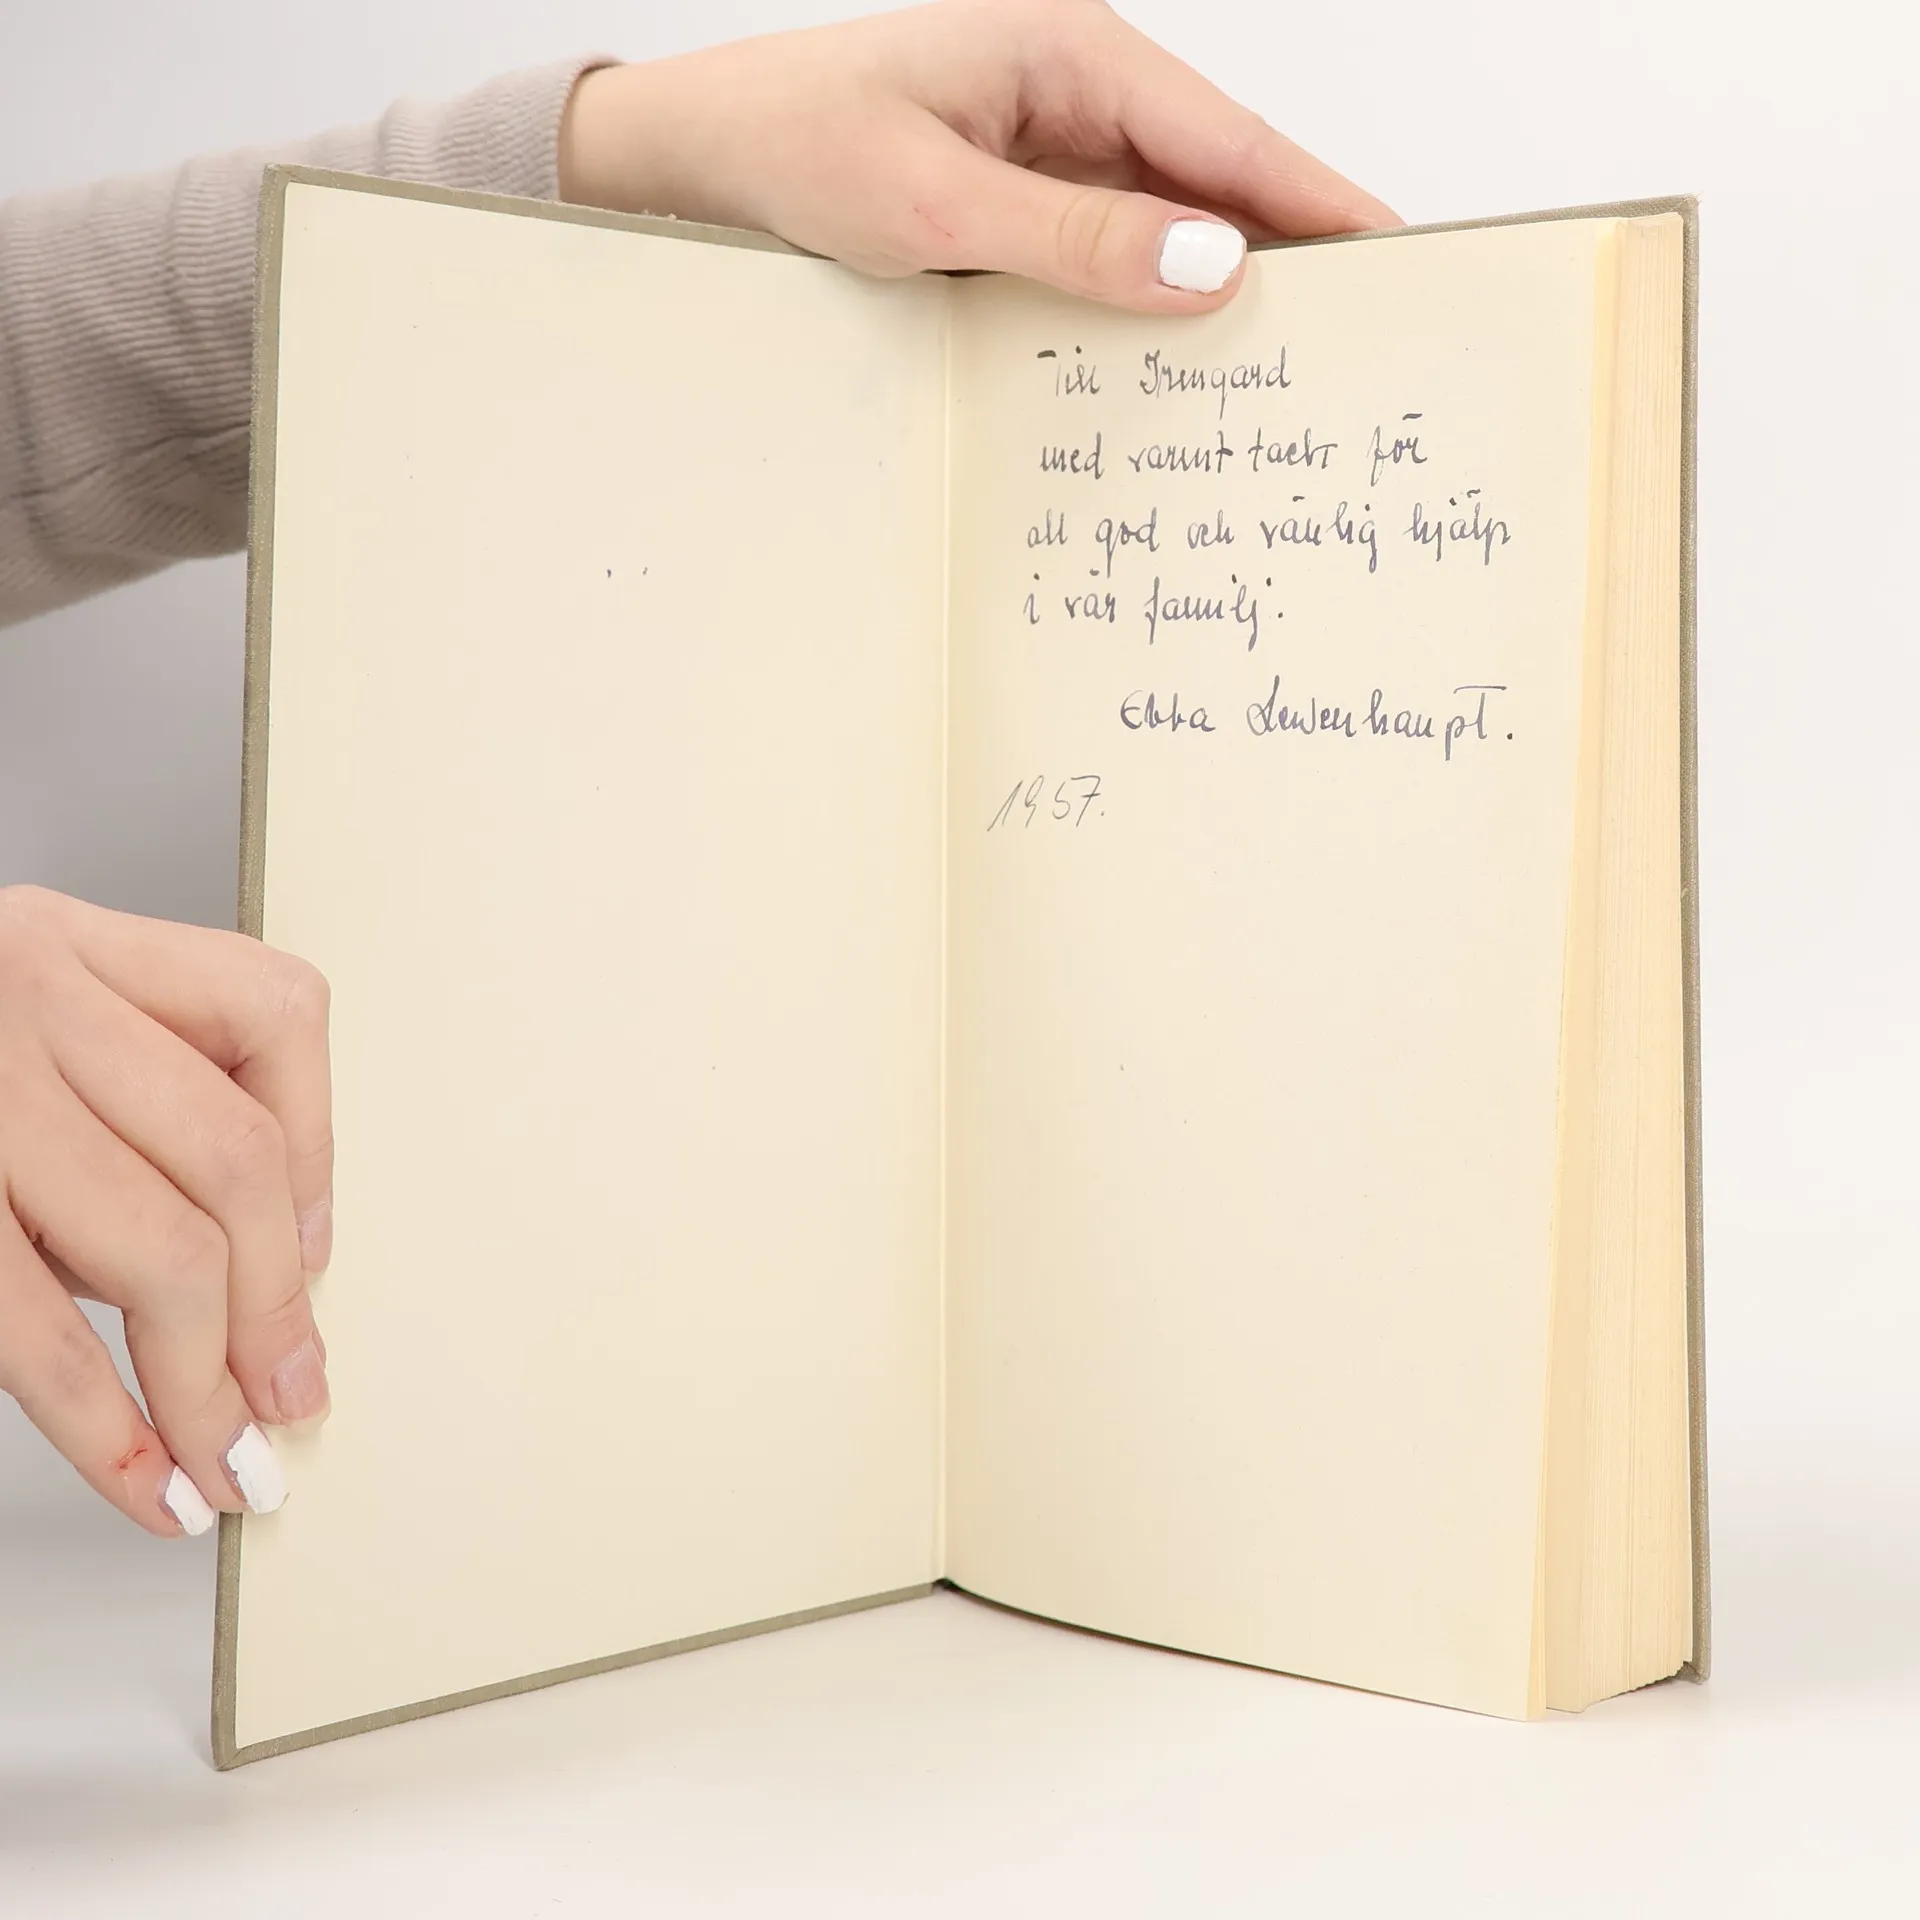 Till Irmgard
med varmt tack för
all god och vänlig hjälp
i vår familj.
Ebba Lewenhaupt.
1957.